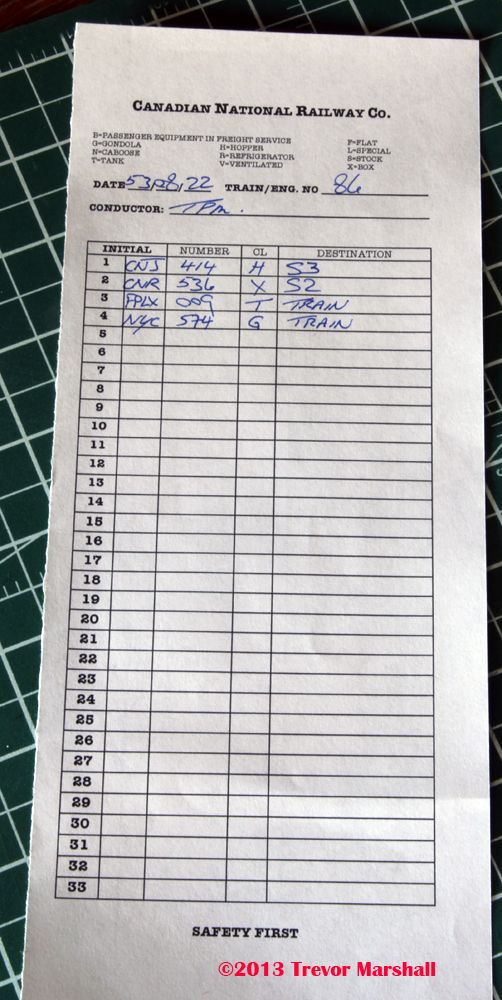 CANADIAN NATIONAL RAILWAY CO.
B=PASSENGER EQUIPMENT IN FREIGHT SERVICE F=FLAT
G=GONDOLA H=HOPPER L=SPECIAL
N=CABOOSE R=REFRIGERATOR S=STOCK
T=TANK V=VENTILATED X=BOX
DATE 53,08,22 TRAIN/ENG. NO 86
CONDUCTOR: TPM.
INITIAL NUMBER CL DESTINATION
1 CNJ 414 H S3
2 CNR 536 X S2
3 PPLX 009 T TRAIN
4 NYC 574 G TRAIN
5
6
7
8
9
10
11
12
13
14
15
16
17
18
19
20
21
22
23
24
25
26
27
28
29
30
31
32
33
SAFETY FIRST
©2013 Trevor Marshall